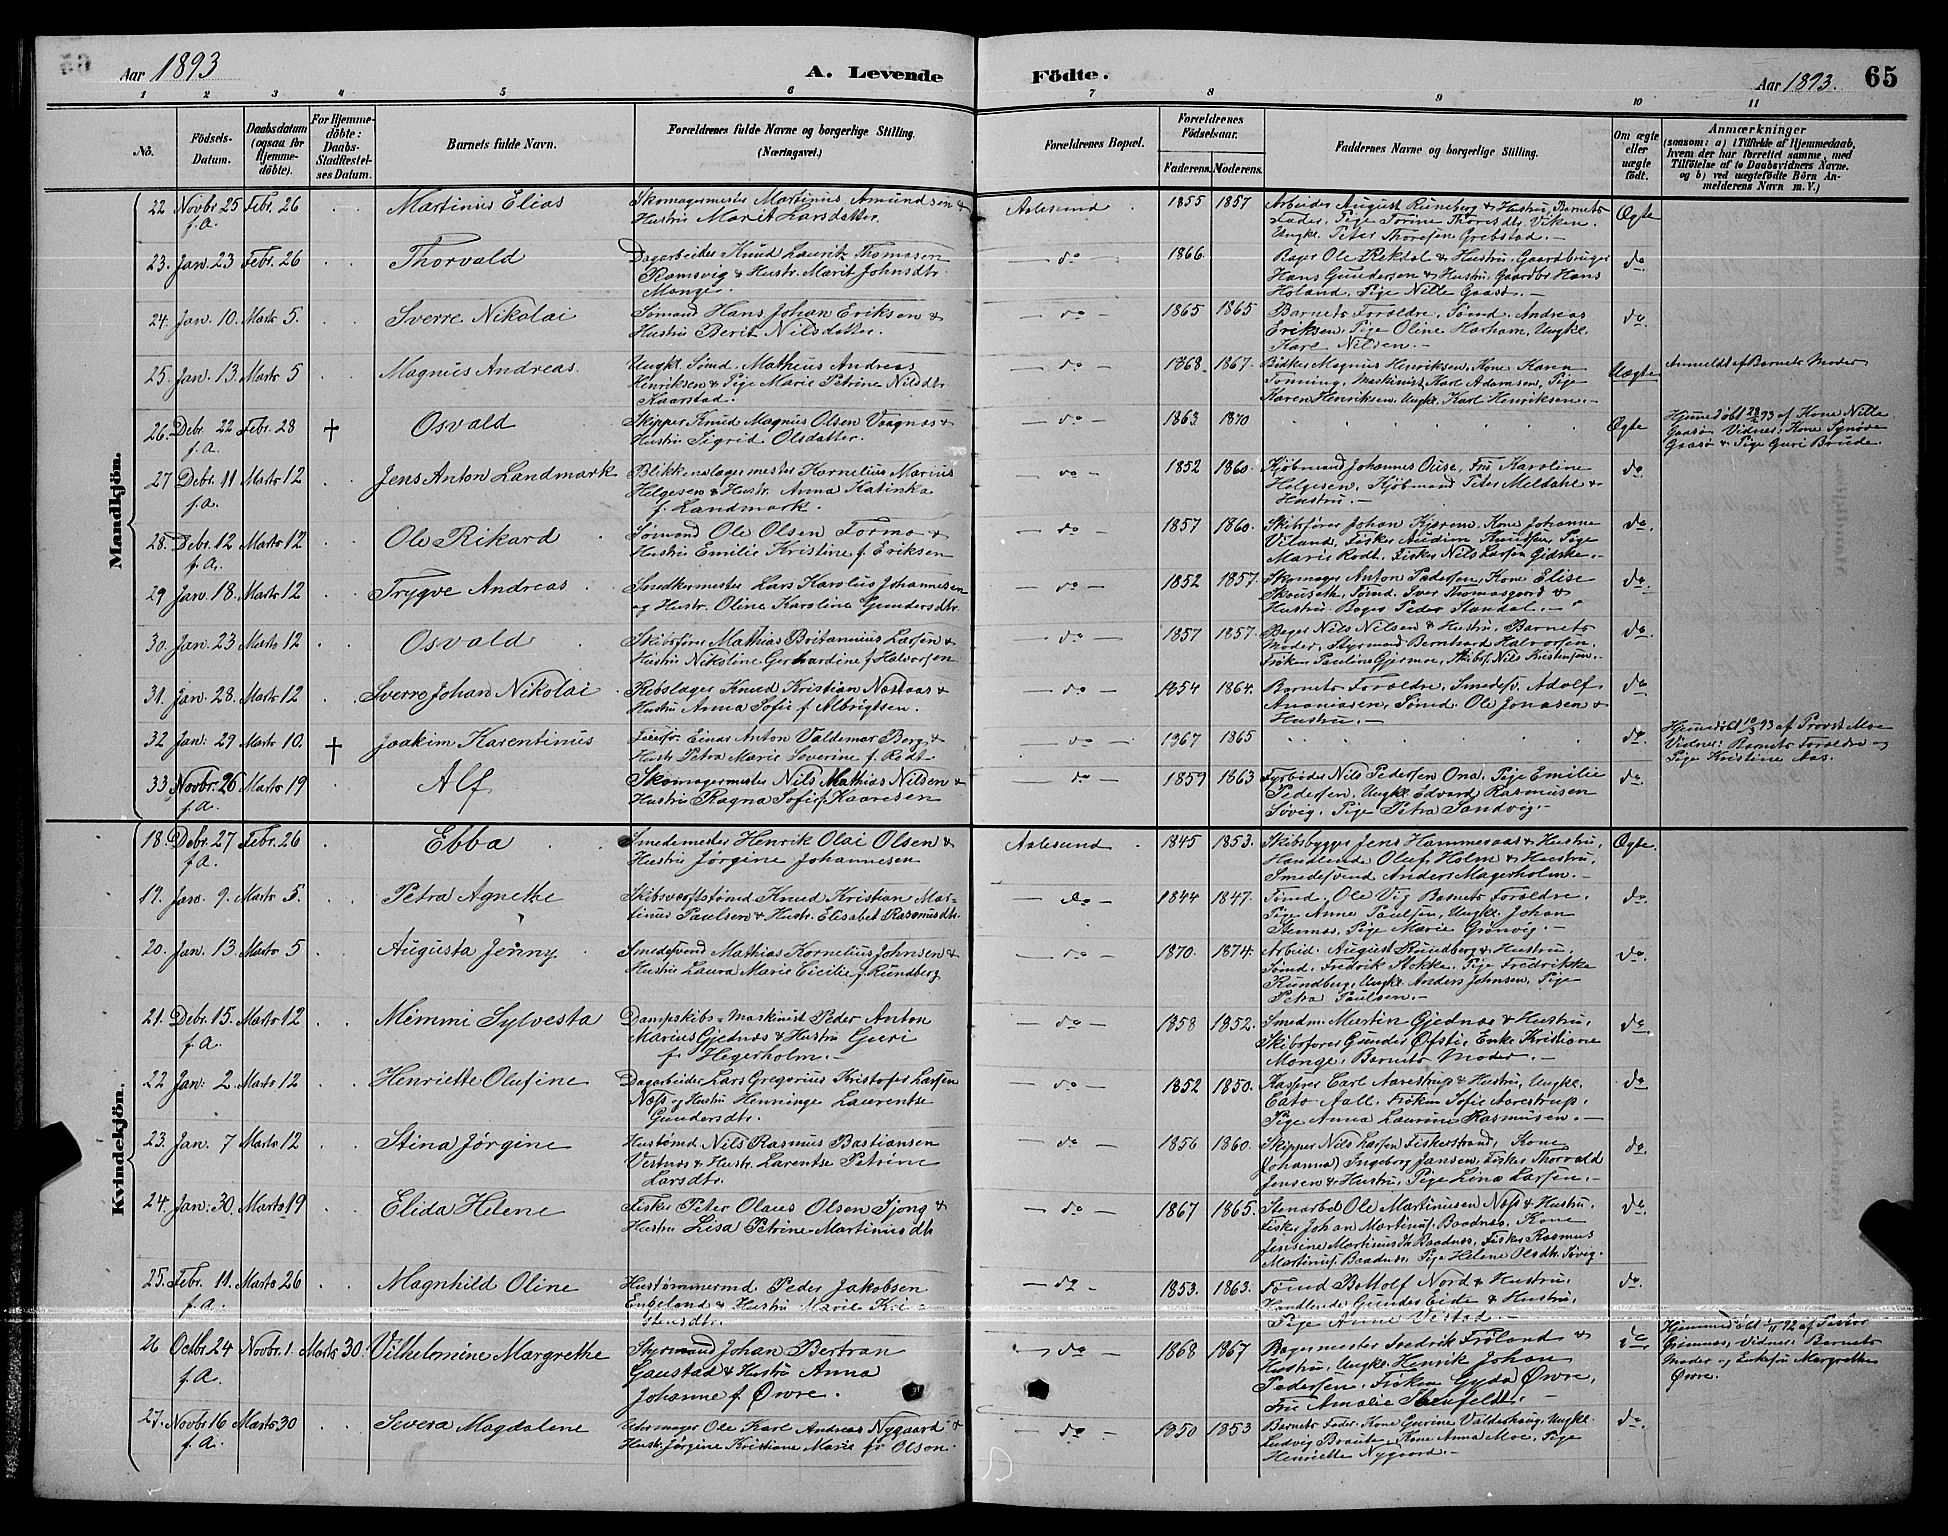 Aar 1893
A. Levende
Födte.
Aar 1893.
65
1 2 3 4 5 6 7 8 9 10 11
No.
Födsels-Datum.
Daabsdatum (ogsaa for Hjemme-döbte).
For Hjemme-döbte: Daabs-Stadfæstel-ses Datum.
Barnets fulde Navn.
Forældrenes fulde Navne og borgerlige Stilling.
(Næringsvei.)
Forældrenes Bopæl.
Forældrenes Födselsaar.
Faderens. Moderens.
Faddernes Navne og borgerlige Stilling.
Om ægte eller uægte födt.
Anmærkninger
(saasom: a) i Tilfælde af Hjemmedaab, hvem der har forrettet samme, med Tilföielse af to Daabsvidners Navne. og b) ved uægtefödte Börn An-melderens Navn m. V.)
Mandkjön.
22 Novbr 25 f.A. Febr. 26 Martinus Elias Skomagermester Martinus Amundsen & Hustru Marit Larsdatter. Aalesund 1855 1857 Arbeider August Runeberg & Hustru, Barnets Fader, Pige Torine Thoresdtr. Viken, Ungkl. Peter Thoresen Grebstad. Ægte
23. Jan. 23 Febr. 26 Thorvald Dagarbeider Knud Lauritz Thomasen Ramsvig & Hustr. Marit Johnsdtr. Monge. do 1866. Bager Ole Rekdal & Hustru, Gaardbruger Hans Gundersen & Hustru, Gaardbr. Hans Holand, Pige Nille Gaasø. do
24. Jan. 10. Marts 5. Sverre Nikolai Sømand Hans Johan Eriksen & Hustru Berit Nilsdatter. do 1865 1865 Barnets Forældre, Sømd. Andreas Eriksen, Pige Oline Harham, Ungkl. Karl Nilsen. do
25. Jan. 13. Marts 5 Magnus Andreas. Ungkl. Sømd. Mathias Andreas Henriksen & Pige Marie Petrine Nilsdtr. Kaarstad. do 1868. 1867. Bødker Magnus Henriksen, Kone Karen Tonning, Maskinist Karl Adamsen, Pige Karen Henriksen, Ungkl. Karl Henriksen. Uægte Anmeldt af Barnets Moder
26. Debr. 22 f.A. Febr. 28 † Osvald Skipper Knud Magnus Olsen Vaagnes & Hustru Sigrid Olsdatter. do 1863 1870 Ægte Hjemmedøbt 28/2 93 af Kone Nille Gaasø. Vidner: Kone Synøve Gaasø & Pige Guri Brude.
27 Debr. 11 f.A. Marts 12 Jens Anton Landmark Blikkenslagermester Kornelius Marius Helgesen & Hustr. Anna Katinka f. Landmark. do 1852 1860. Kjøbmand Johannes Ouse, Frk Karoline Helgesen, Kjøbmand Peter Meldahl & Hustru. do
28. Debr. 12 f.A. Marts 12 Ole Rikard Sømand Ole Olsen Formo & Hustru Emilie Kristine f. Eriksen do 1857 1860. Skibsfører Johan Kjærem, Kone Johanne Viland, Fisker Audun Knudsen, Pige Marie Rødt, Fisker Nils Larsen Gidske. do
29 Jan. 18. Marts 12 Trygve Andreas Snedkermester Lars Karolus Johannesen og Hustr. Oline Karoline Gundersdtr. do 1852 1857. Skomager Anton Pedersen, Kone Elise Skouseth, Tømd. Iver Thomasgard & Hustru, Bager Peder Standal. do
30. Jan. 23 Marts 12 Osvald Skibsfører Mathias Britannius Larsen & Hustru Nikoline Gerhardine f. Halvorsen do 1857 1857. Bager Nils Nilsen & Hustru, Barnets Moder, Styrmand Bernhard Halvorsen, Frøken Pauline Gjermoe, Skibsf. Nils Kristensen. do
31. Jan 28. Marts 12 Sverre Johan Nikolai Rebslager Knud Kristian Næstaas & Hustru Anna Sofie f. Albrigtsen. do 1854 1864. Barnets Forældre, Smedesv. Adolf Ananiasen, Sømd. Ole Jonasen & Hustru. do
32 Jan: 29 Marts 10. † Joakim Karentinus Einar Anton Valdemar Berg & Hustr. Petra Marie Severine f. Rødt do 1867 1865 do. Hjemmedøbt 10/3 93 af Provst Moe Vidner: Barnets Forældre og Pige Kristine Aas.
33 Novbr. 26 f.A. Marts 19 Alf Skomagermester Nils Mathias Nilsen & Hustru Ragna Sofie f. Kaaresen do 1859 1863 Fyrbøder Nils Pedersen Ona, Pige Emilie Pedersen, Ungkl. Edvard Rasmusen Søvig, Pige Petra Sandvig. do
Kvindekjön.
18. Debr. 27 f.A. Febr. 26 Ebba Smedemester Henrik Olai Olsen & Hustru Jørgine Johannesen Aalesund 1845 1853. Skibsbygger Jens Hammesaas & Hustru, Handlende Oluf Holm & Hustru, Smedesvend Anders Magerholm. Ægte.
19. Jan. 9. Marts 5. Petra Agnethe Skibsværftstømd Knud Kristian Martinus Paulsen & Hustr. Elisabet Rasmusdtr. do 1844 1847. Tømd. Ole Vig Barnets Forældre, Pige Anne Paulsen, Ungkl. Johan Stennes, Pige Marie Grønvig. do
20. Jan. 13 Marts 5 Augusta Jenny Smedesvend Mathias Kornelius Johnsen & Hustru Laura Marie Cicilie f. Rundberg do 1870. 1874. Arbeid. August Rundberg & Hustru, Sømd. Fredrik Stokke, Pige Fredrikke Rundberg, Ungkl. Anders Johnsen, Pige Petra Paulsen. do
21. Debr. 15. f.A. Marts 12 Mimmi Sylvesta Dampskibs-Maskinist Peder Anton Marius Gjednæs & Hustru Guri f. Hegerholm. do 1858 1852. Smedm. Martin Gjednæs & Hustru, Skibsfører Gunder Øfsti, Enke Kristiane Monge, Barnets Moder. do
22 Jan: 2. Marts 12 Henriette Olufine Dagarbeider Lars Gregorius Kristofer Larsen Næss og Hustru Henninge Laurentse Gundersdtr. do 1852 1850. Kasserer Carl Aarestrup & Hustru, Ungkl. Cato Aall, Frøken Sofie Aarestrup, Pige Anna Laurine Rasmusen. do
23. Jan. 7 Marts 12 Stina Jørgine Hustømd Nils Rasmus Bastiansen Vestnæs & Hustr. Larentse Petrine Larsdtr. do 1856 1860. Skipper Nils Larsen Fiskerstrand, Kone (Johanna) Ingeborg Jansen, Fisker Thorvald Jensen & Hustru, Pige Lina Larsen. do
24. Jan: 30. Marts 19 Elida Helene Fisker Peter Olaus Olsen Sjong & Hustru Lisa Petrine Martinusdtr do 1867 1865. Stenarbd Ole Martinusen Næss & Hustru, Fisker Johan Martinus. Baadnes, Kone Jensine Martinusdtr Baadnes, Fisker Rasmus Martinus. Baadnes, Pige Helene Olsdtr. Søvig. do
25. Febr. 11. f.A. Marts 26 Magnhild Oline Hustømmermd. Peder Jakobsen Engeland & Hustru Marie Kristensdtr. do 1853. 1863. Tømd Bottolf Nord & Hustru, Handlende Gunder Eide & Hustru, Pige Anne Vestad. do
26 Octbr. 24 f.A. Novbr. 1. Marts 30. Vilhelmine Margrethe Styrmand Johan Bertran Gaustad & Hustru Anna Johanne f. Øvre. do 1868 1867 Bagermester Fredrik Frøland & Hustru, Ungkl. Henrik Johan Pedersen, Frøken Gyda Øvre, Fru Amalie Steufeldt. do Hjemmedøbt 1/11 92 af Pastor Grimnæs, Vidner: Barnets Moder og Enkefru Margrethe Øvre.
27. Novbr 16 f.A. Marts 30 Severa Magdalene Uhrmager Ole Karl Andreas Nygaard & Hustr. Jørgine Kristiane Marie f. Olsen. do 1850 1853 Barnets Fader, Kone Gurine Valderhaug, Ungkl. Ludvig Braute, Kone Anna Moe, Pige Henriette Nygaard. do